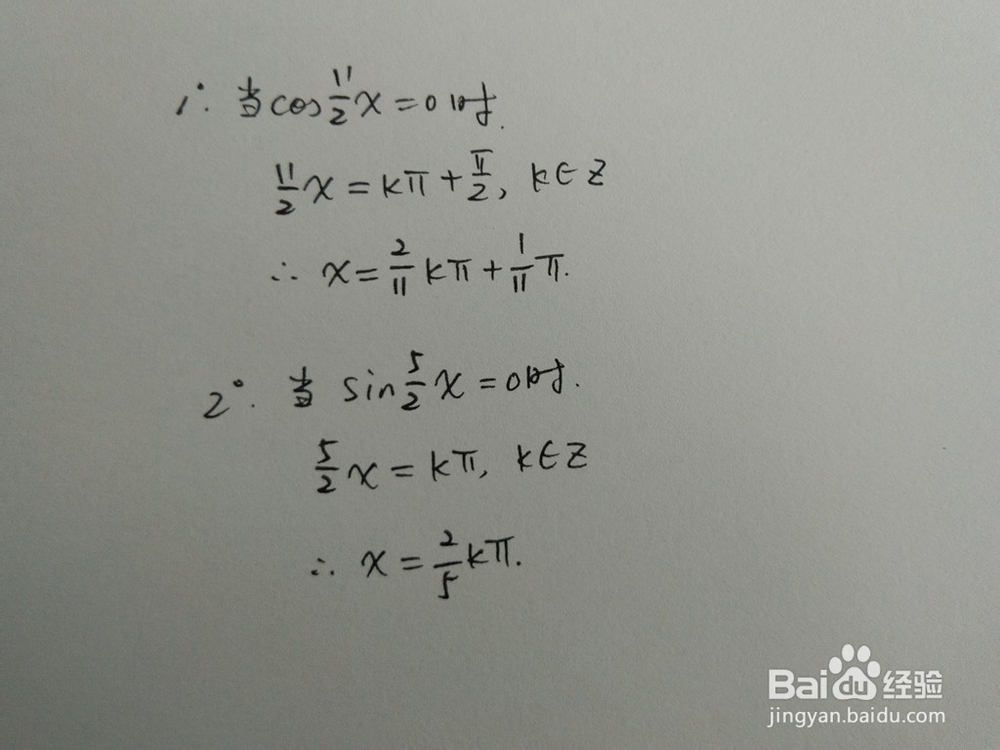 1°. 当cos11/2x=0时.
11/2x=kπ+π/2, k∈Z
∴ x=2/11kπ+1/11π.
2°. 当 sin5/2x=0时.
5/2x=kπ, k∈Z
∴ x=2/5kπ.
Baidu经验
jingyan.baidu.com